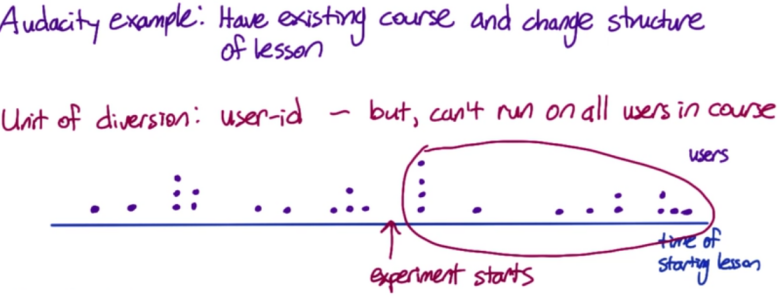 Audacity example: Have existing course and change structure
of lesson
Unit of diversion: user-id - but, can't run on all users in course
users
experiment starts
time of
starting lesson